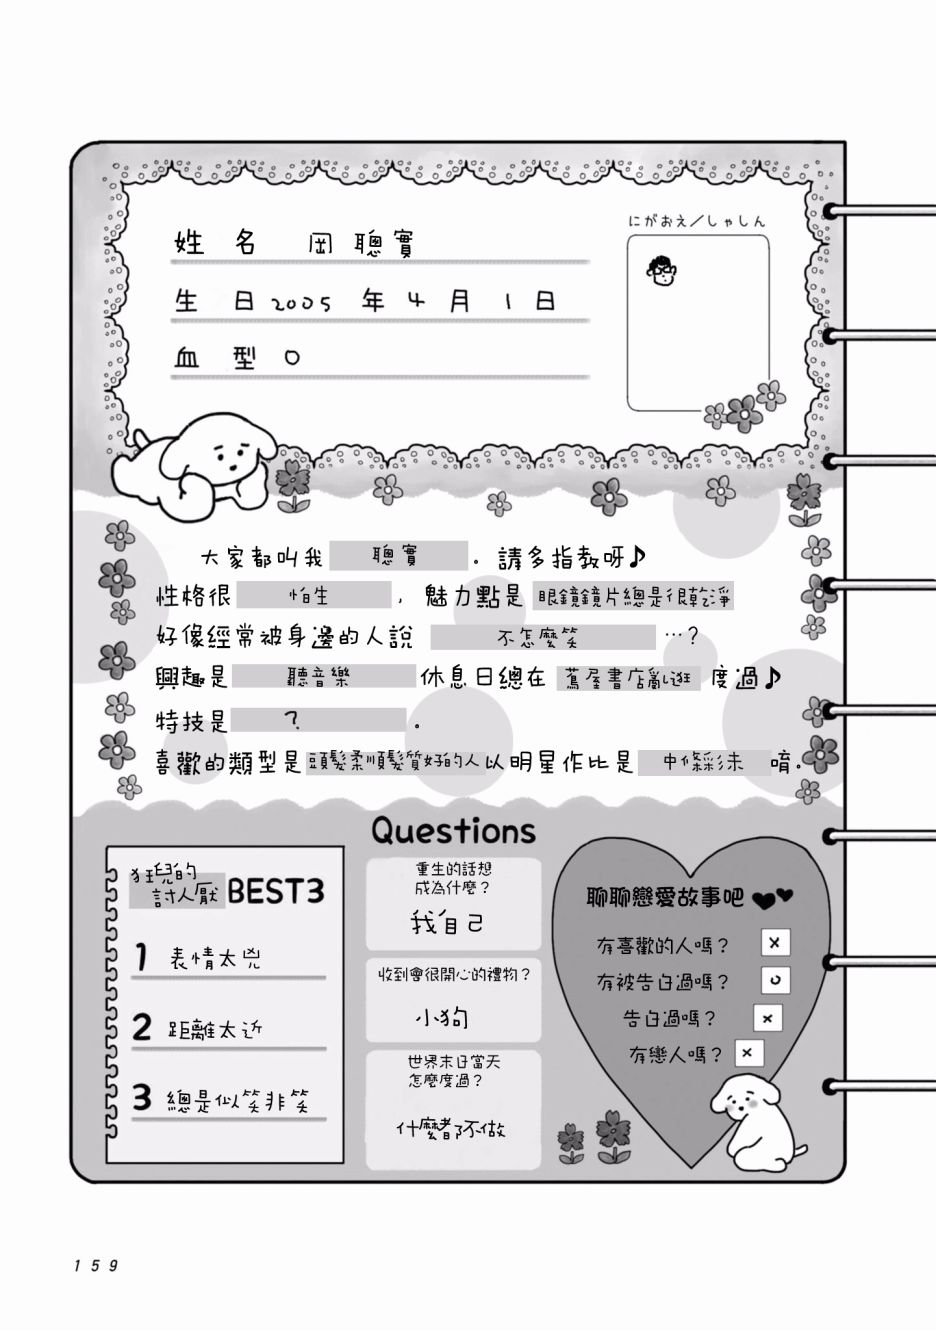 にがおえ/しゃしん
姓 名 岡 聰實
生 日 2005 年 4 月 1 日
血 型 O
大家都叫我 聰實 。請多指教呀♪
性格很 怕生 , 魅力點是 眼鏡鏡片總是很乾淨
好像經常被身邊的人說 不怎麼笑 …?
興趣是 聽音樂 休息日總在 蔦屋書店亂逛 度過♪
特技是 ? 。
喜歡的類型是 頭髮柔順髮質好的人 以明星作比是 中條彩未 唷。
Questions
狂兒的
討人厭 BEST3
1 表情太兇
2 距離太近
3 總是似笑非笑
重生的話想
成為什麼?
我自己
收到會很開心的禮物?
小狗
世界末日當天
怎麼度過?
什麼都不做
聊聊戀愛故事吧
有喜歡的人嗎? ×
有被告白過嗎? ○
告白過嗎? ×
有戀人嗎? ×
159